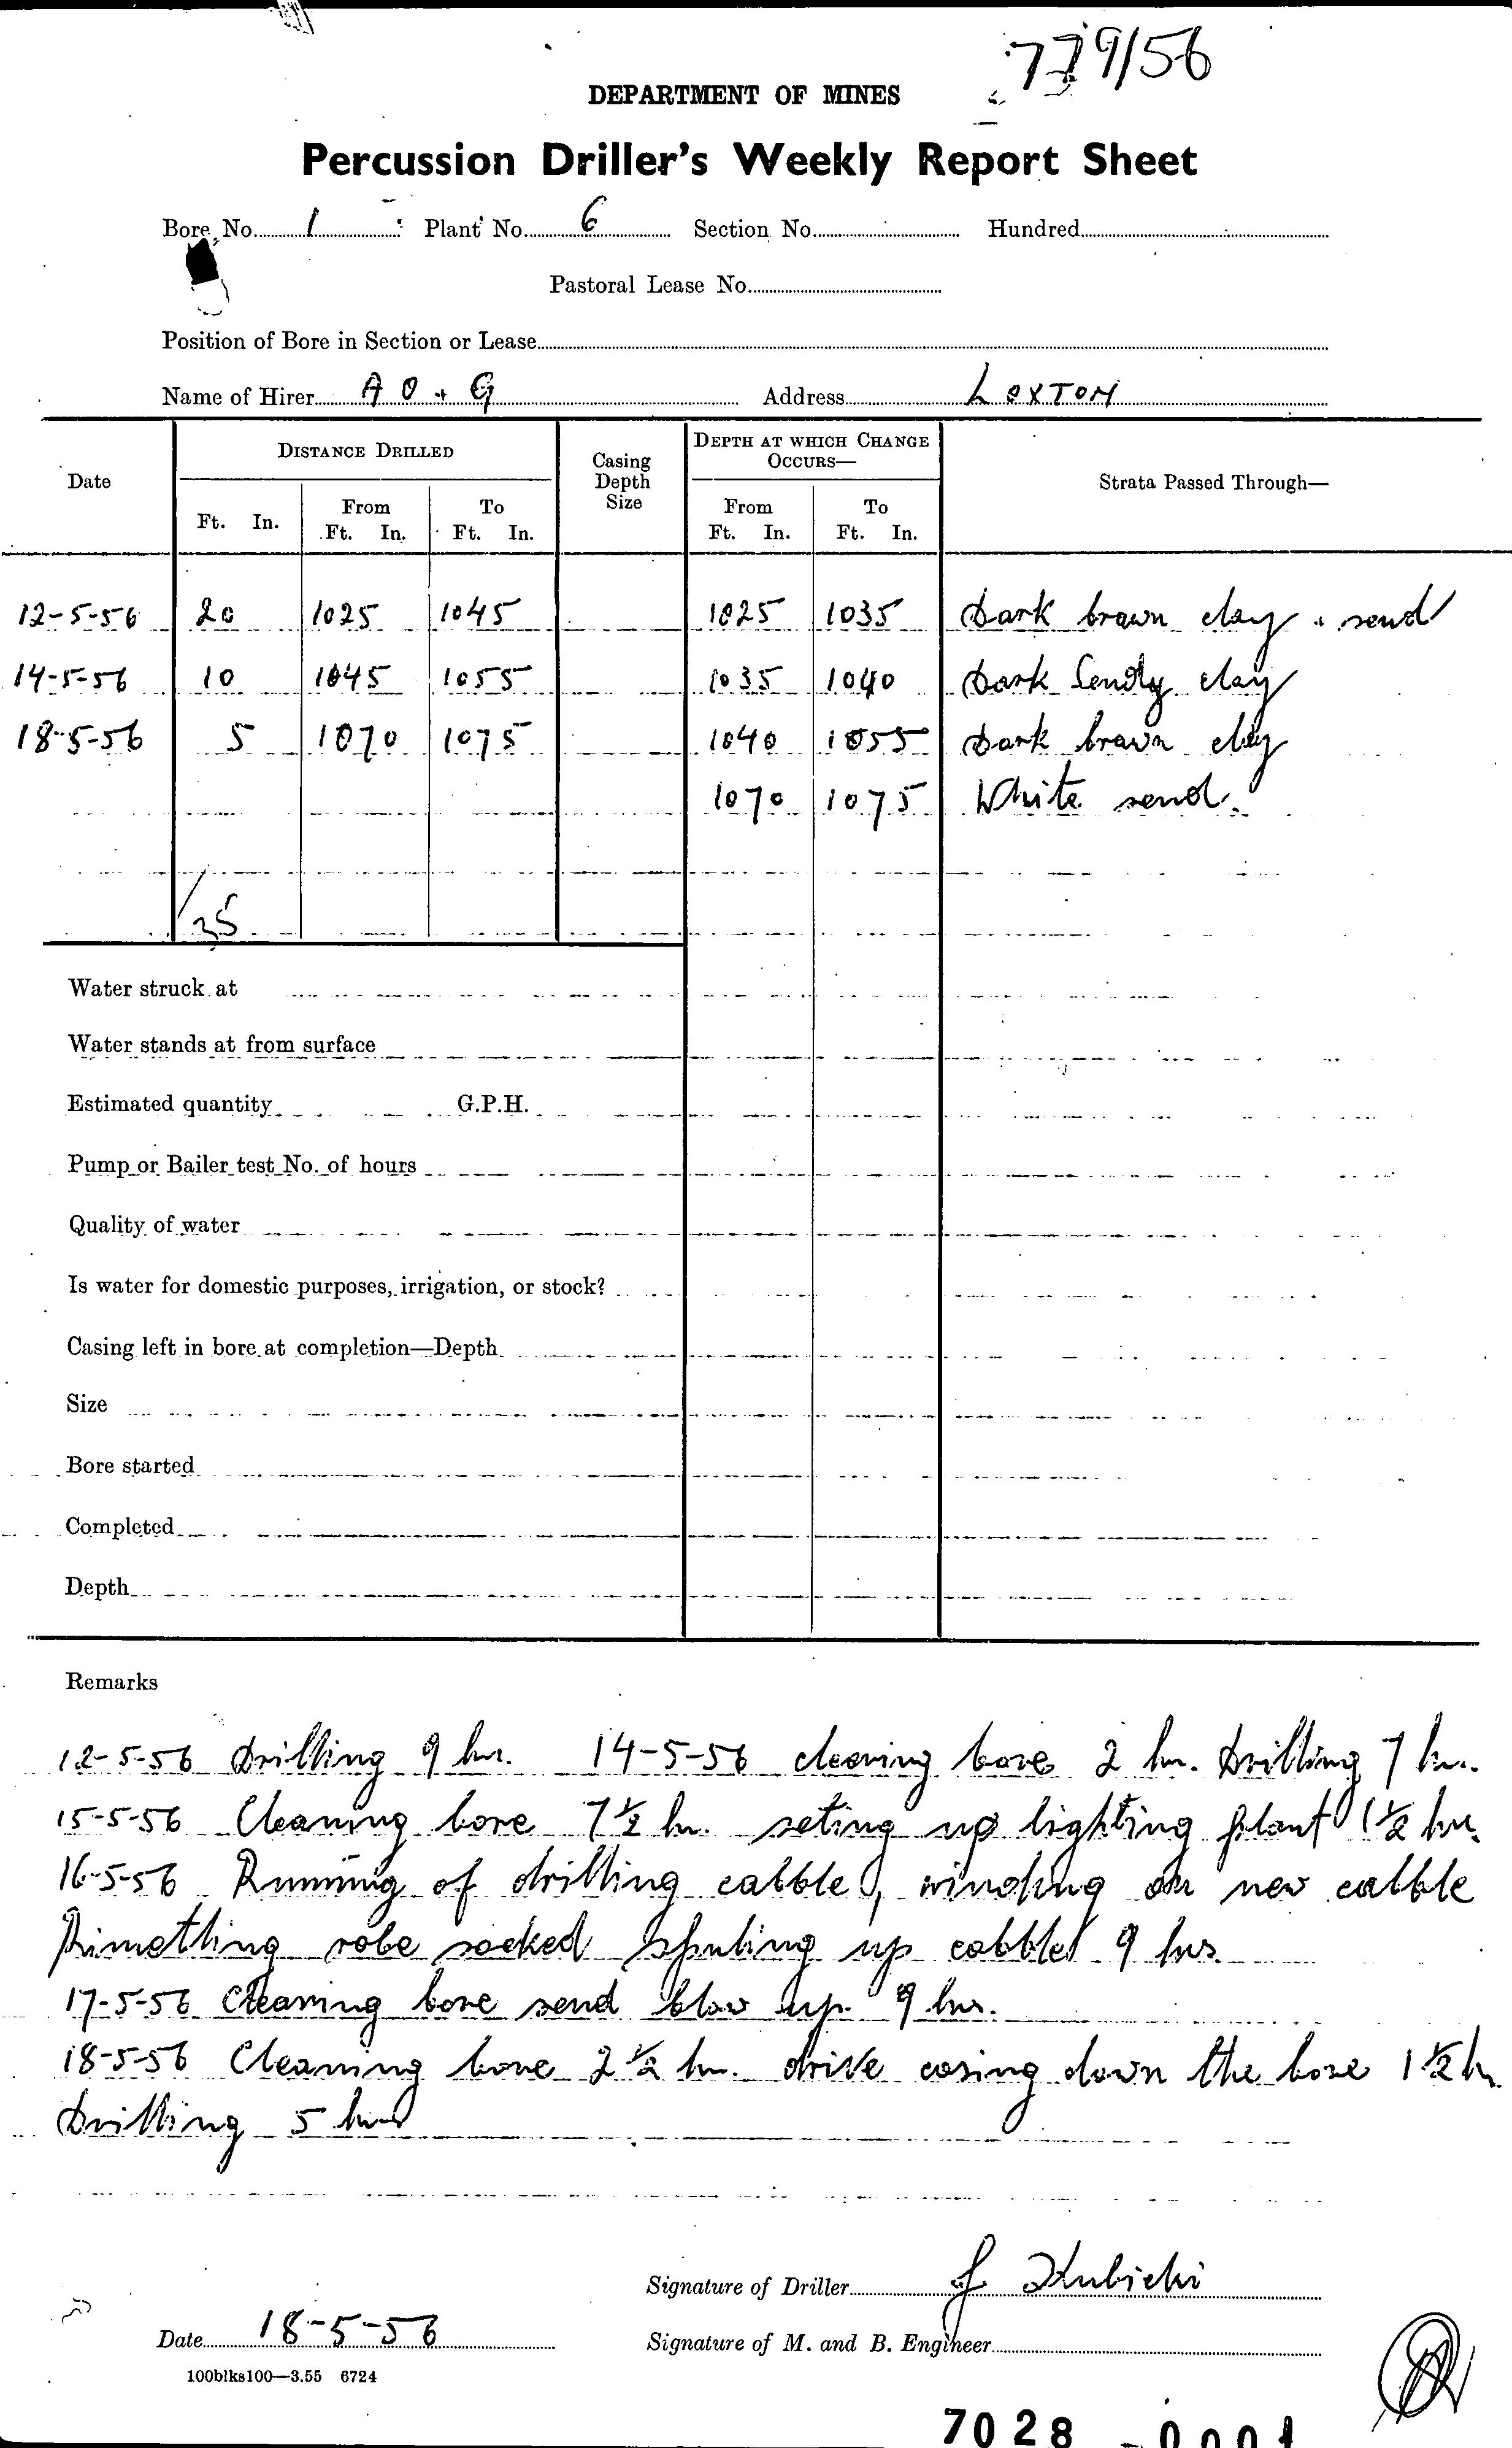 779/56
DEPARTMENT OF MINES
Percussion Driller's Weekly Report Sheet
Bore No. 1 Plant No. 6 Section No. Hundred
Pastoral Lease No.
Position of Bore in Section or Lease
Name of Hirer A O + G Address LOXTON
Date DISTANCE DRILLED Casing Depth Size DEPTH AT WHICH CHANGE OCCURS— Strata Passed Through—
Ft. In. From Ft. In. To Ft. In. From Ft. In. To Ft. In.
12-5-56 20 1025 1045 1025 1035 Dark brown clay + send
14-5-56 10 1045 1055 1035 1040 Dark Sendy clay
18-5-56 5 1070 1075 1040 1055 Dark brown clay
1070 1075 White send.
35
Water struck at
Water stands at from surface
Estimated quantity G.P.H.
Pump or Bailer test No. of hours
Quality of water
Is water for domestic purposes, irrigation, or stock?
Casing left in bore at completion—Depth
Size
Bore started
Completed
Depth
Remarks
12-5-56 Drilling 9 hr. 14-5-56 cleaning bore 2 hr. Drilling 7 hr.
15-5-56 Cleaning bore 7½ hr. seting up lighting plant 1½ hr.
16-5-56 Running of drilling cabble, winding on new cabble
robe socked up cabble 9 hrs
17-5-56 Cleaning bore send blow up. 9 hr.
18-5-56 Cleaning bore 2½ hr. drive casing down the bore 1½ h
Drilling 5 hrs
Signature of Driller J Kubicki
Date 18-5-56 Signature of M. and B. Engineer
100blks100—3.55 6724
7028 - 0001